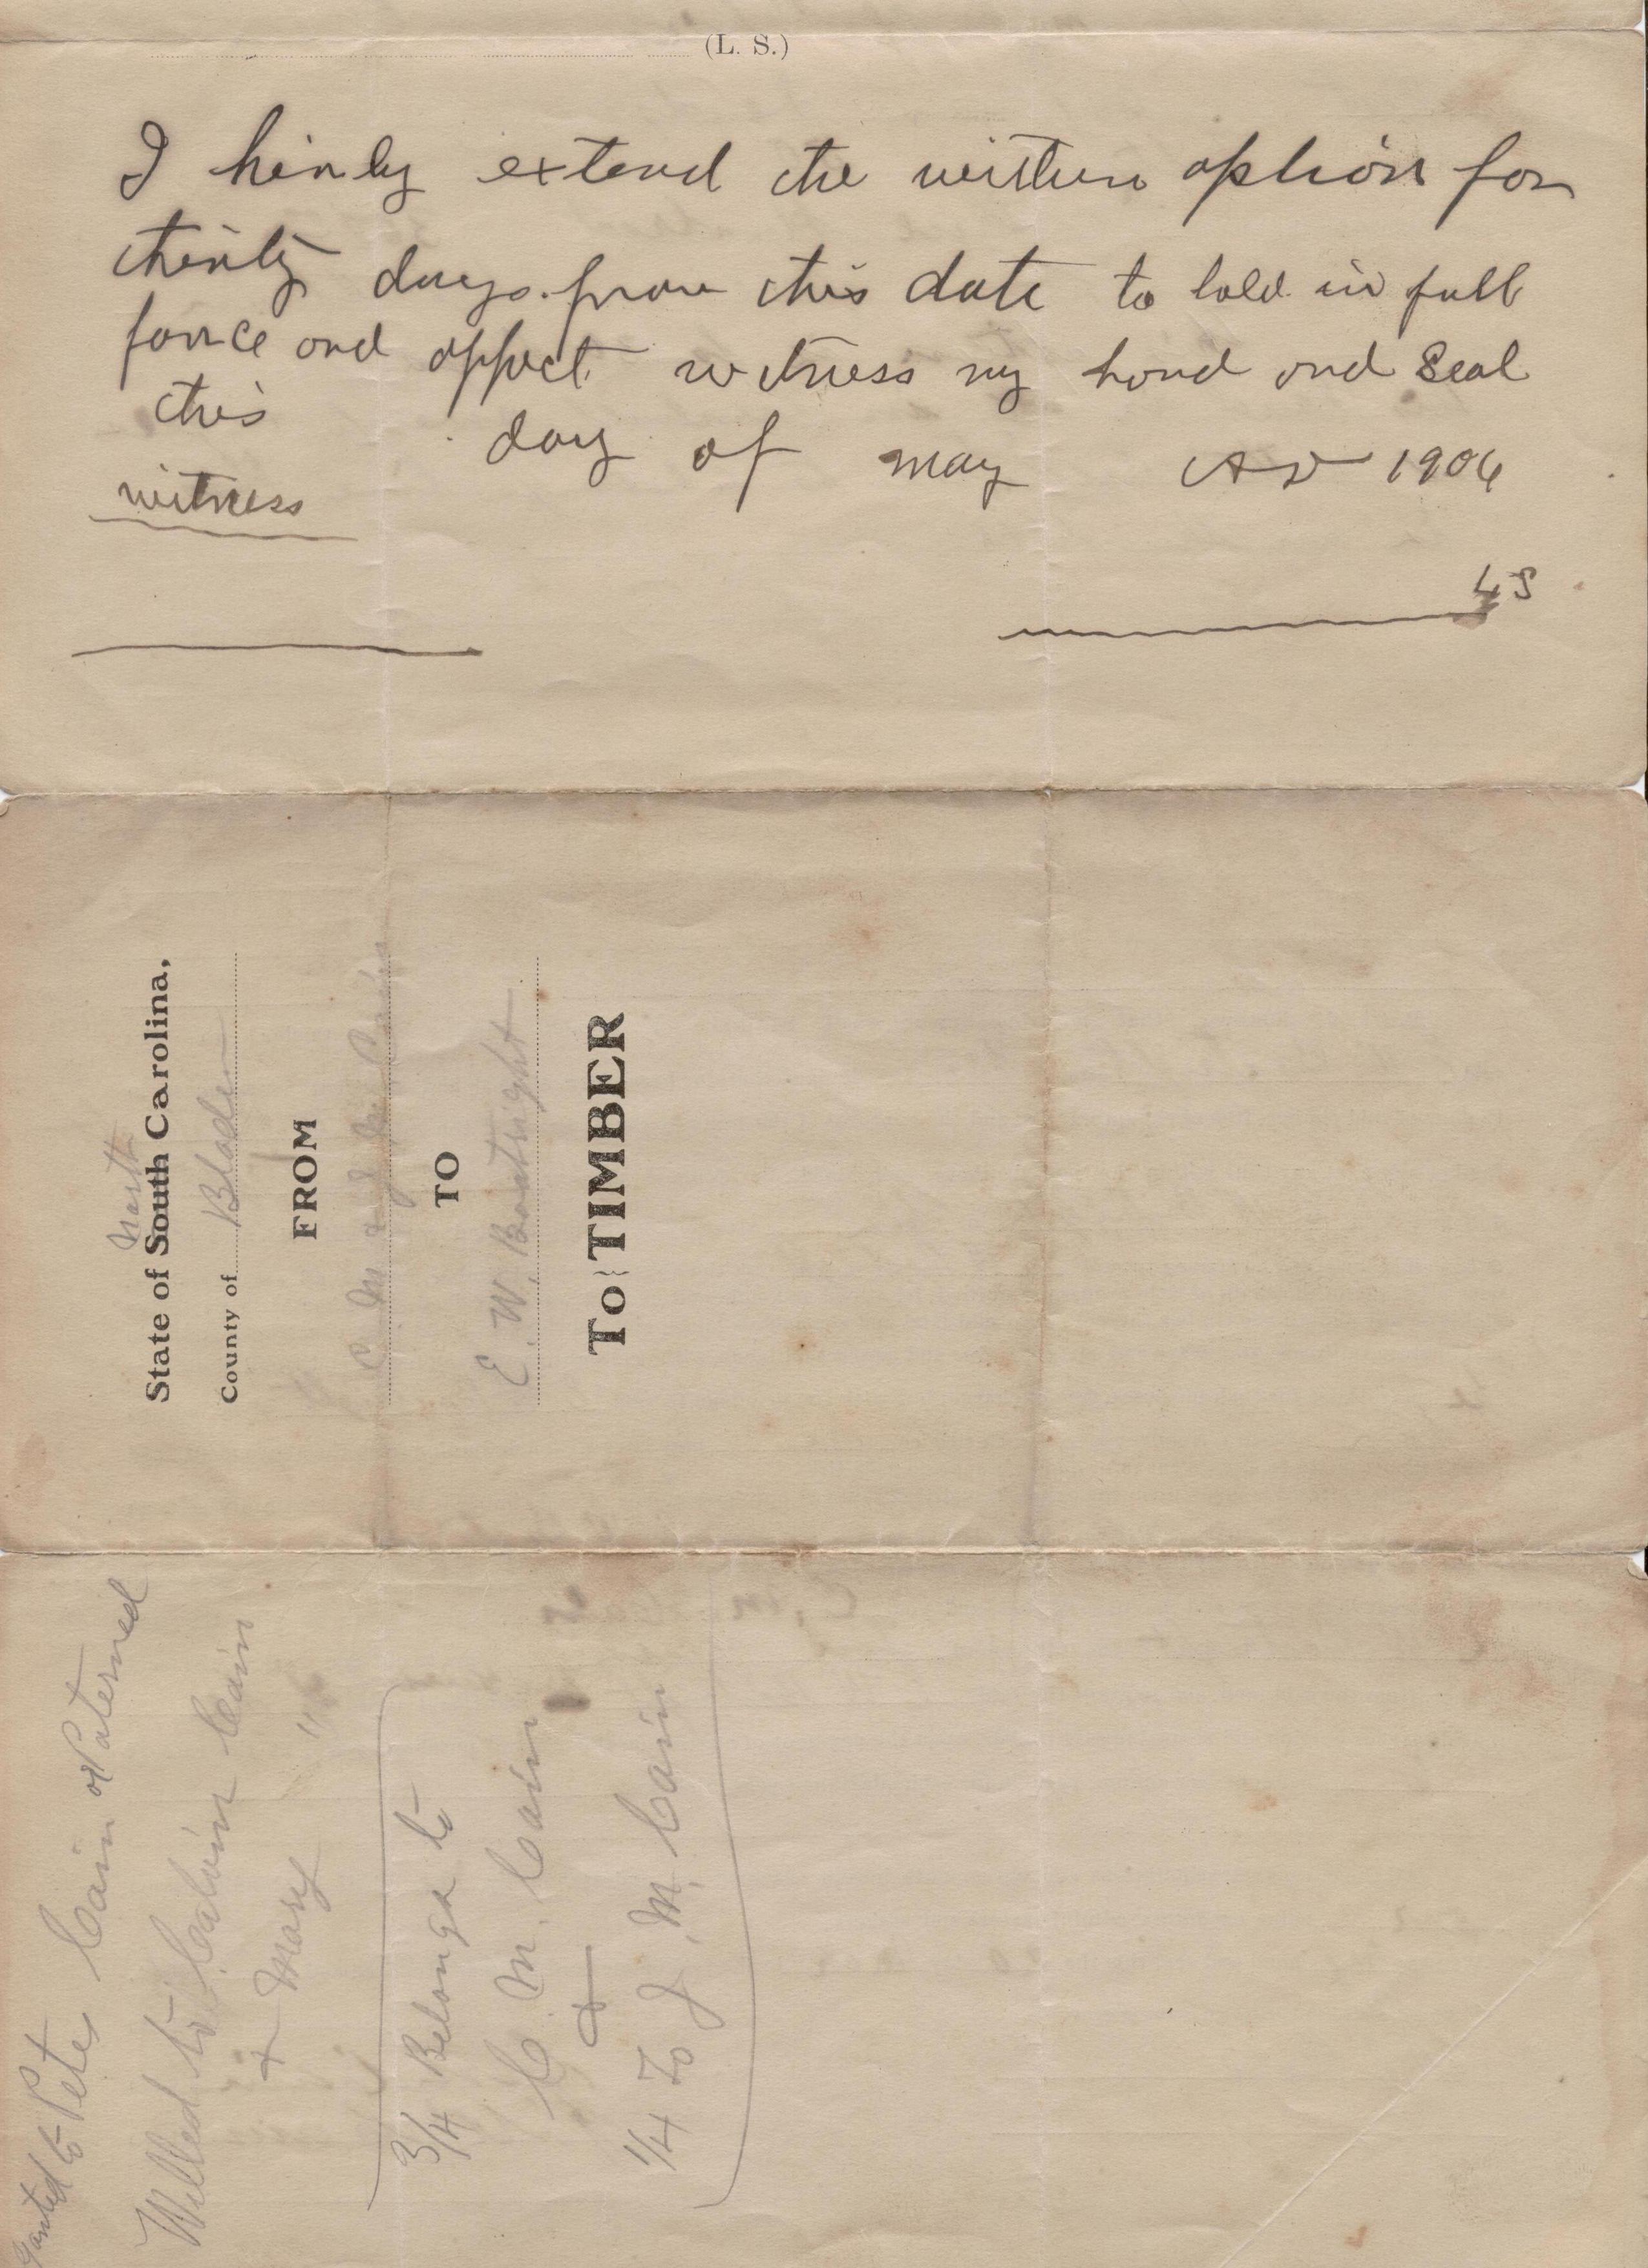 (L. S.)
I hereby extend the written option for
thirty days from this date to hold in full
force and affect witness my hand and Seal
this day of may AD 1906
witness
LS
North
State of South Carolina,
County of Bladen
FROM
C M & J M Cain
TO
E. W. Boatright
To TIMBER
Granted to Peter Cain & Paterned
Willed to Calvin Cain
& Mary "
3/4 Belongs to
C. M. Cain
&
1/4 To J. M. Cain